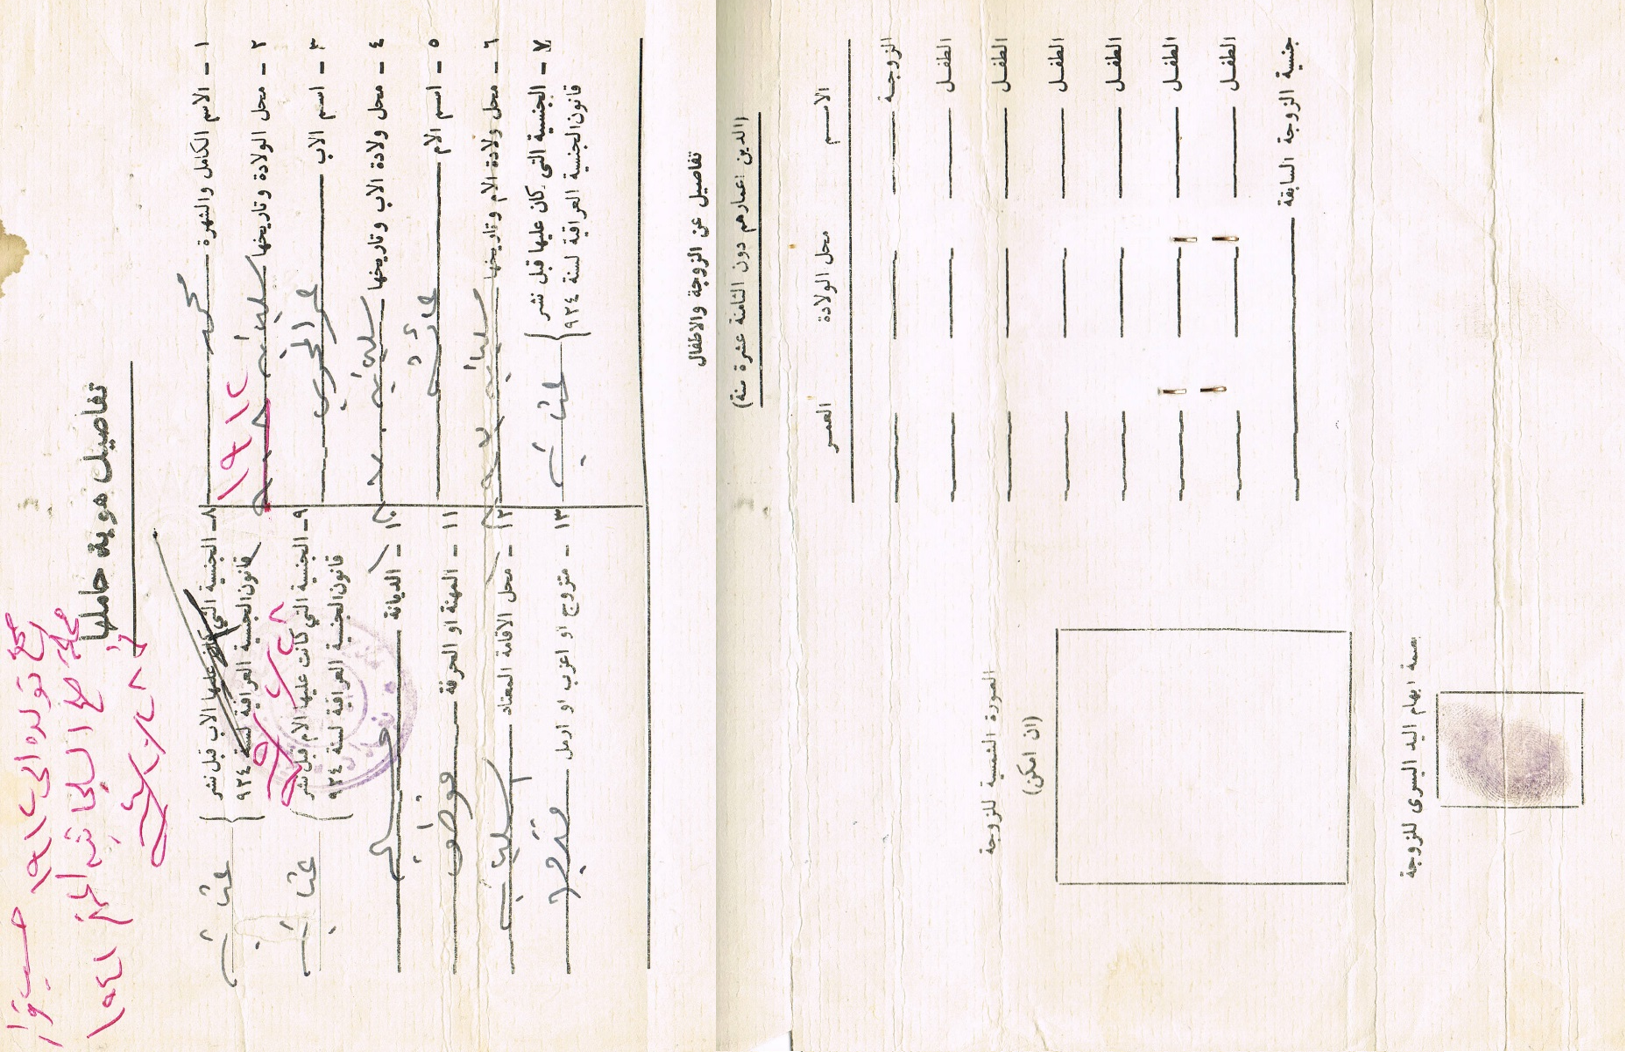 تفاصيل هوية حاملها
١ - الاسم الكامل والشهرة محمد
٢ - محل الولادة وتاريخها سليمانيه
١٩١٢
٣ - اسم الاب
٤ - محل ولادة الاب وتاريخها سليمانيه
٥ - اسم الام عائشه
٦ - محل ولادة الام وتاريخها سليمانيه
٧ - الجنسية التي كان عليها قبل نشر
قانون الجنسية العراقية لسنة ٩٢٤
عثمانيه
٨ - الجنسية التي كان عليها الاب قبل نشر
قانون الجنسية العراقية لسنة ٩٢٤
عثمانيه
٩ - الجنسية التي كانت عليها الام قبل نشر
قانون الجنسية العراقية لسنة ٩٢٤
عثمانيه
١٠ - الديانة مسلم
١١ - المهنة او الحرفة
١٢ - محل الاقامة المعتاد سليمانيه
١٣ - متزوج او اعزب او ارمل متزوج
صحح تولده الى ١٩١٢ حسب قرار
تفاصيل عن الزوجة والاطفال
(الذين اعمارهم دون الثامنة عشرة سنة)
الاسم محل الولادة العمر
الزوجة
الطفل
الطفل
الطفل
الطفل
الطفل
الطفل
جنسية الزوجة السابقة
الصورة الشمسية للزوجة
(ان امكن)
بصمة ابهام اليد اليسرى للزوجة